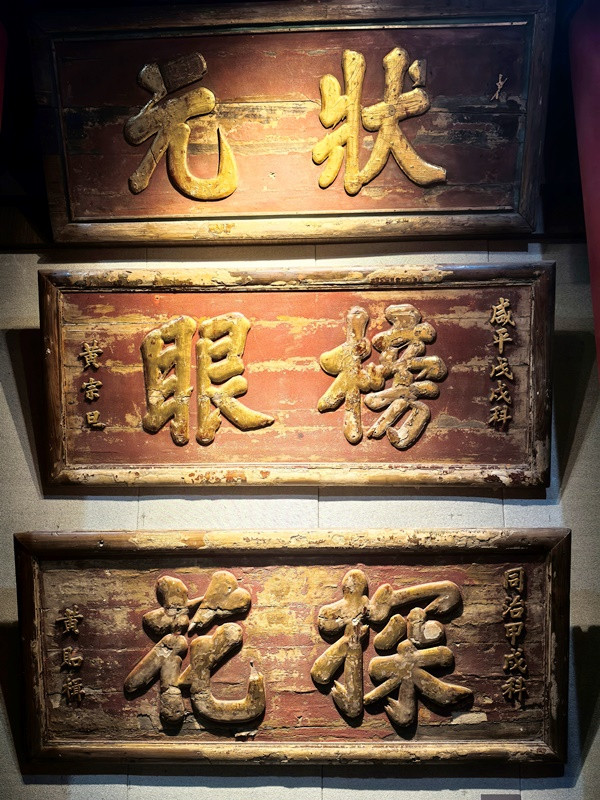 狀元
咸平戊戌科
榜眼
黃宗旦
同治甲戌科
探花
黃貽楫